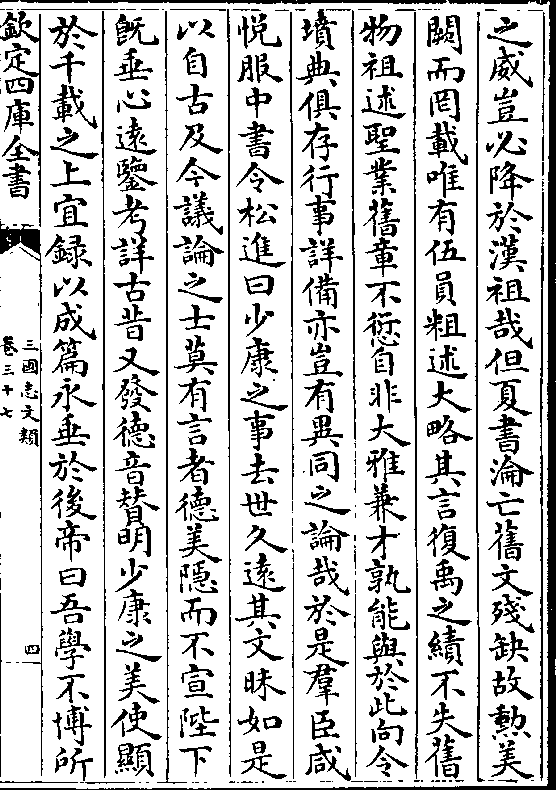 之威豈必降於漢祖哉但夏書淪亡舊文殘缺故勲美
闕而罔載唯有伍員粗述大略其言復禹之績不失舊
物祖述聖業舊章不愆自非大雅兼才孰能與於此向令
墳典俱存行事詳備亦豈有異同之論哉於是羣臣咸
悦服中書令松進曰少康之事去世久遠其文昧如是
以自古及今議論之士莫有言者德美隱而不宣陛下
既垂心遠鑒考詳古昔又發德音賛明少康之美使顯
於千載之上宜録以成篇永垂於後帝曰吾學不博所
欽定四庫全書
三國志文類
卷三十七
四